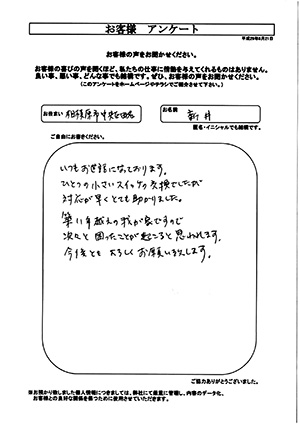 お客様 アンケート
平成29年6月21日
お客様の声をお聞かせください。
お客様の喜びの声を聞くほど、私たちの仕事に情動を与えてくれるものはありません。
良い事、悪い事、どんな事でも結構です。ぜひ、お客様の声をお聞かせください。
(このアンケートをホームページやチラシでご紹介させて下さい。)
お住まい 相模原市中央区
お名前 新井
匿名・イニシャルでも結構です。
ご自由にお書きください。
いつもお世話になっております。
ひとつの小さいスイッチの交換でしたが
対応が早くとても助かりました。
築11年越えの我が家ですので
次々と困ったことが起こると思われます。
今後ともよろしくお願い致します。
ご協力ありがとうございました。
※お預かり致しました個人情報につきましては、弊社にて厳重に管理し、内容のデータ化、
お客様との良好な関係を保つために使用させていただきます。